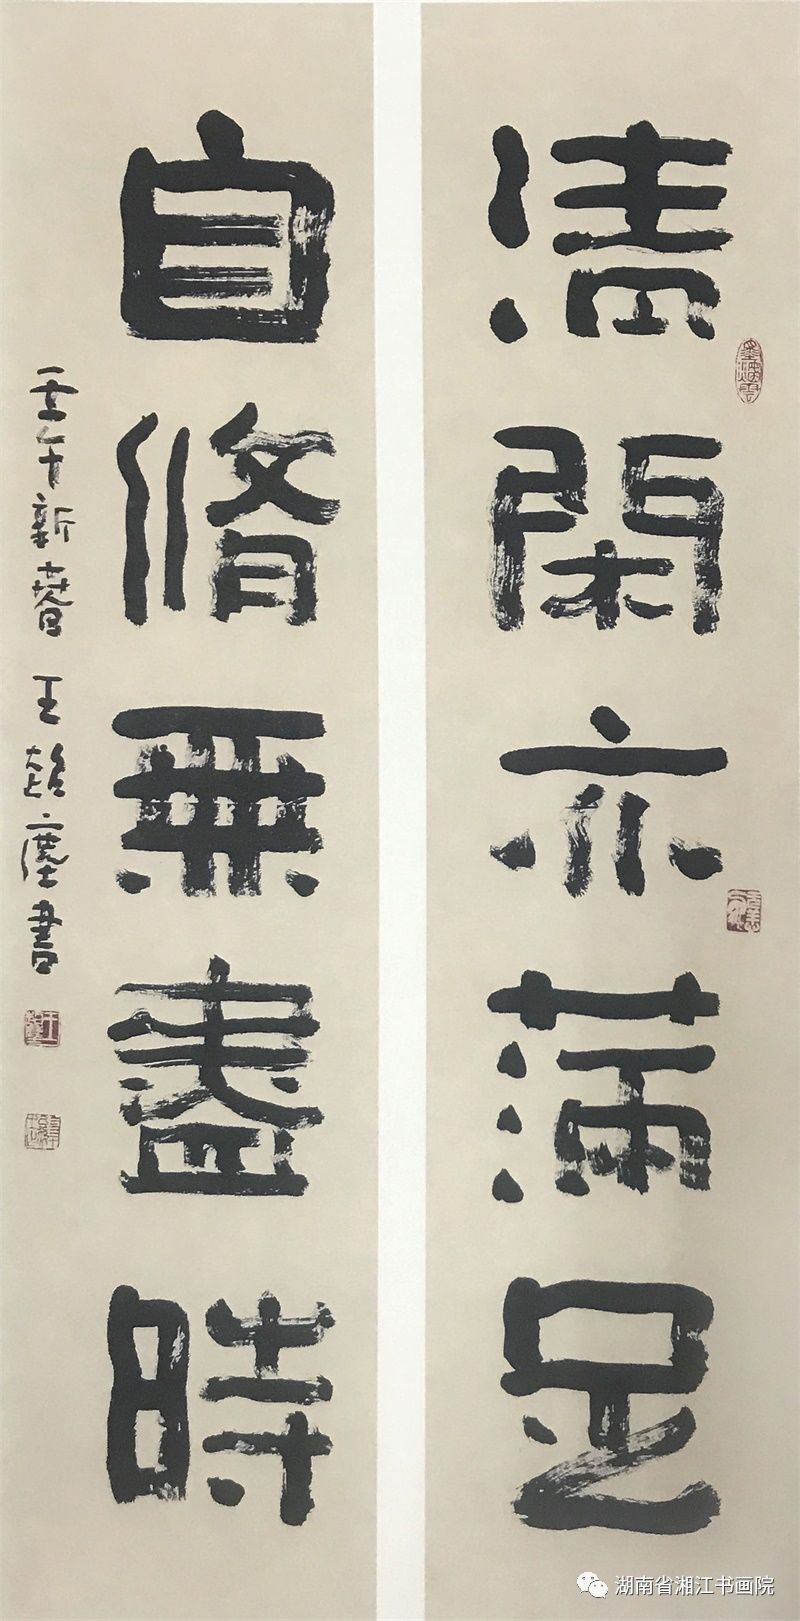 清閑亦滿足
自脩無盡時
壬午新春王超塵書
湖南省湘江书画院